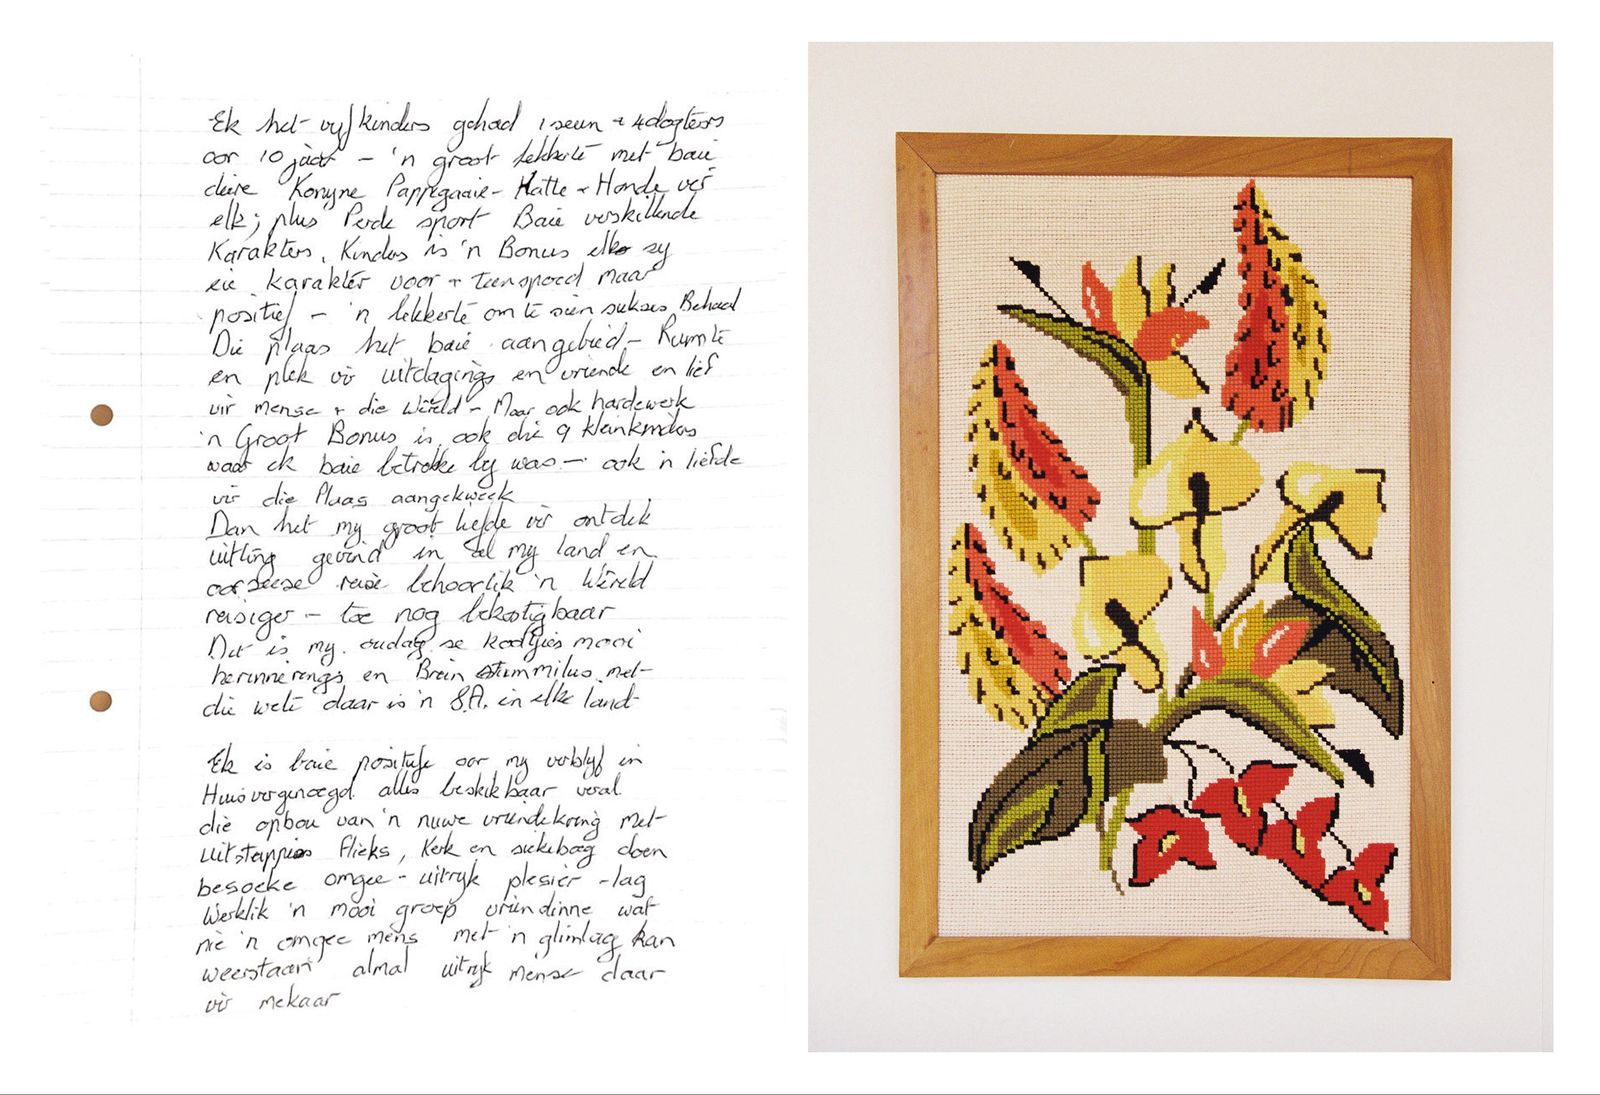 Ek het vyf kinders gehad 1 seun + 4 dogters
oor 10 jaar – 'n groot lekkerte met baie
diere Konyne Pappegaaie – Katte + Honde vir
elk; plus Perde sport Baie verskillende
Karakters. Kinders is 'n Bonus elke sy
eie karakter voor + teenspoed maar
positief – 'n lekkerte om te sien sukses Behaal
Die plaas het baie aangebied – Ruimte
en plek vir uitdagings en vriende en lief
vir mense + die Wêreld – Maar ook hardewerk
'n Groot Bonus is ook die 9 kleinkinders
waar ek baie betrokke by was – ook 'n liefde
vir die Plaas aangekweek
Dan het my groot liefde vir ontdek
uiting gevind in al my land en
oorseese reise behoorlik 'n Wêreld
reisiger – toe nog bekostigbaar
Dit is my oudag se kooltjies mooi
herinnerings en Brein stimmilus met
die wete daar is 'n S.A. in elke land
Ek is baie positief oor my verblyf in
Huis vergenoegd alles beskikbaar veral
die opbou van 'n nuwe vriendekring met
uitstappies Flieks, Kerk en siekeboeg doen
besoeke omgee – uitryk plesier – lag
Werklik 'n mooi groep vriendinne wat
nie 'n omgee mens met 'n glimlag kan
weerstaan almal uitryk mense daar
vir mekaar